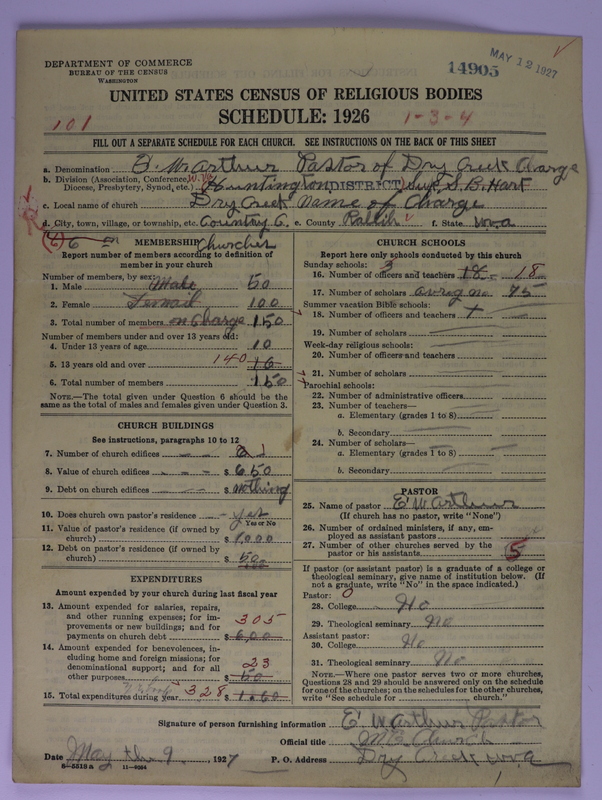 DEPARTMENT OF COMMERCE
BUREAU OF THE CENSUS
WASHINGTON
14905
MAY 12 1927
UNITED STATES CENSUS OF RELIGIOUS BODIES
SCHEDULE: 1926
101
1-3-4
FILL OUT A SEPARATE SCHEDULE FOR EACH CHURCH. SEE INSTRUCTIONS ON THE BACK OF THIS SHEET
a. Denomination E. W Arthur Pastor of Dry Creek Charge
b. Division (Association, Conference, Diocese, Presbytery, Synod, etc.) W. Va Huntington (DISTRICT) Supt S. B. Hart
c. Local name of church Dry Creek Name of Charge
d. City, town, village, or township, etc. Country 6. e. County Raleih f. State W.a
(6) 6 on Churches
MEMBERSHIP
Report number of members according to definition of member in your church
Number of members, by sex:
1. Male Male 50
2. Female Femail 100
3. Total number of members on Charge 150
Number of members under and over 13 years old:
4. Under 13 years of age 10
5. 13 years old and over 140 16
6. Total number of members 150
NOTE.—The total given under Question 6 should be the same as the total of males and females given under Question 3.
CHURCH BUILDINGS
See instructions, paragraphs 10 to 12
7. Number of church edifices 1
8. Value of church edifices $ 650
9. Debt on church edifices $ nothing
10. Does church own pastor's residence yes
Yes or No
11. Value of pastor's residence (if owned by church) $ 1,000
12. Debt on pastor's residence (if owned by church) $ 50
EXPENDITURES
Amount expended by your church during last fiscal year
13. Amount expended for salaries, repairs, and other running expenses; for improvements or new buildings; and for payments on church debt 305 $ 6,00
14. Amount expended for benevolences, including home and foreign missions; for denominational support; and for all other purposes 23 $ 50
15. Total expenditures during year 328 $
CHURCH SCHOOLS
Report here only schools conducted by this church
Sunday schools: 3
16. Number of officers and teachers 18 18
17. Number of scholars averag no. 75
Summer vacation Bible schools:
18. Number of officers and teachers
19. Number of scholars
Week-day religious schools:
20. Number of officers and teachers
21. Number of scholars
Parochial schools:
22. Number of administrative officers
23. Number of teachers—
a. Elementary (grades 1 to 8)
b. Secondary
24. Number of scholars—
a. Elementary (grades 1 to 8)
b. Secondary
PASTOR
25. Name of pastor E W Arthur
(If church has no pastor, write "None")
26. Number of ordained ministers, if any, employed as assistant pastors
27. Number of other churches served by the pastor or his assistants 5
If pastor (or assistant pastor) is a graduate of a college or theological seminary, give name of institution below. (If not a graduate, write "No" in the space indicated.)
Pastor:
28. College No
29. Theological seminary No
Assistant pastor:
30. College No
31. Theological seminary No
NOTE.—Where one pastor serves two or more churches, Questions 28 and 29 should be answered only on the schedule for one of the churches; on the schedules for the other churches, write "See schedule for church."
Signature of person furnishing information E W Arthur Pastor
Official title M E Church
Date May the 9, 1927 P. O. Address Dry Creek W.a
8—5518 a 11—9064